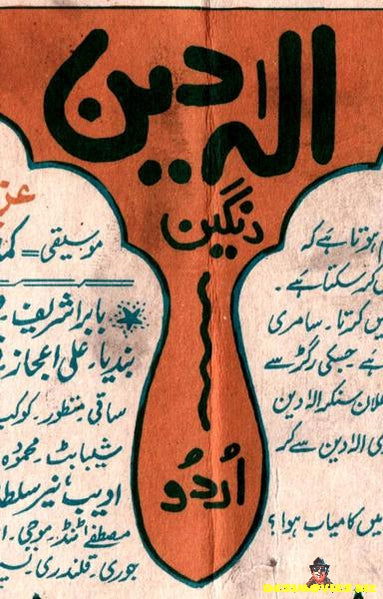 الہ دین
رنگین
اُردُو
موسیقی = کما
بابرا شریف۔
بندیا۔ علی اعجاز۔
ساقی۔ منظور۔ کوکب
شیبا بٹ۔ محمودہ
ادیب۔ نیر سلطا
مصطفےٰ ٹنڈ۔ موجی۔
جوری۔ قلندری۔
ہوتا ہے کہ
کر سکتا ہے۔
کرتا۔ سامری
ہے جسکی رگڑ سے
لان سنکر الہٰ دین
ی الہٰ دین سے کر
میں کامیاب ہوا؟